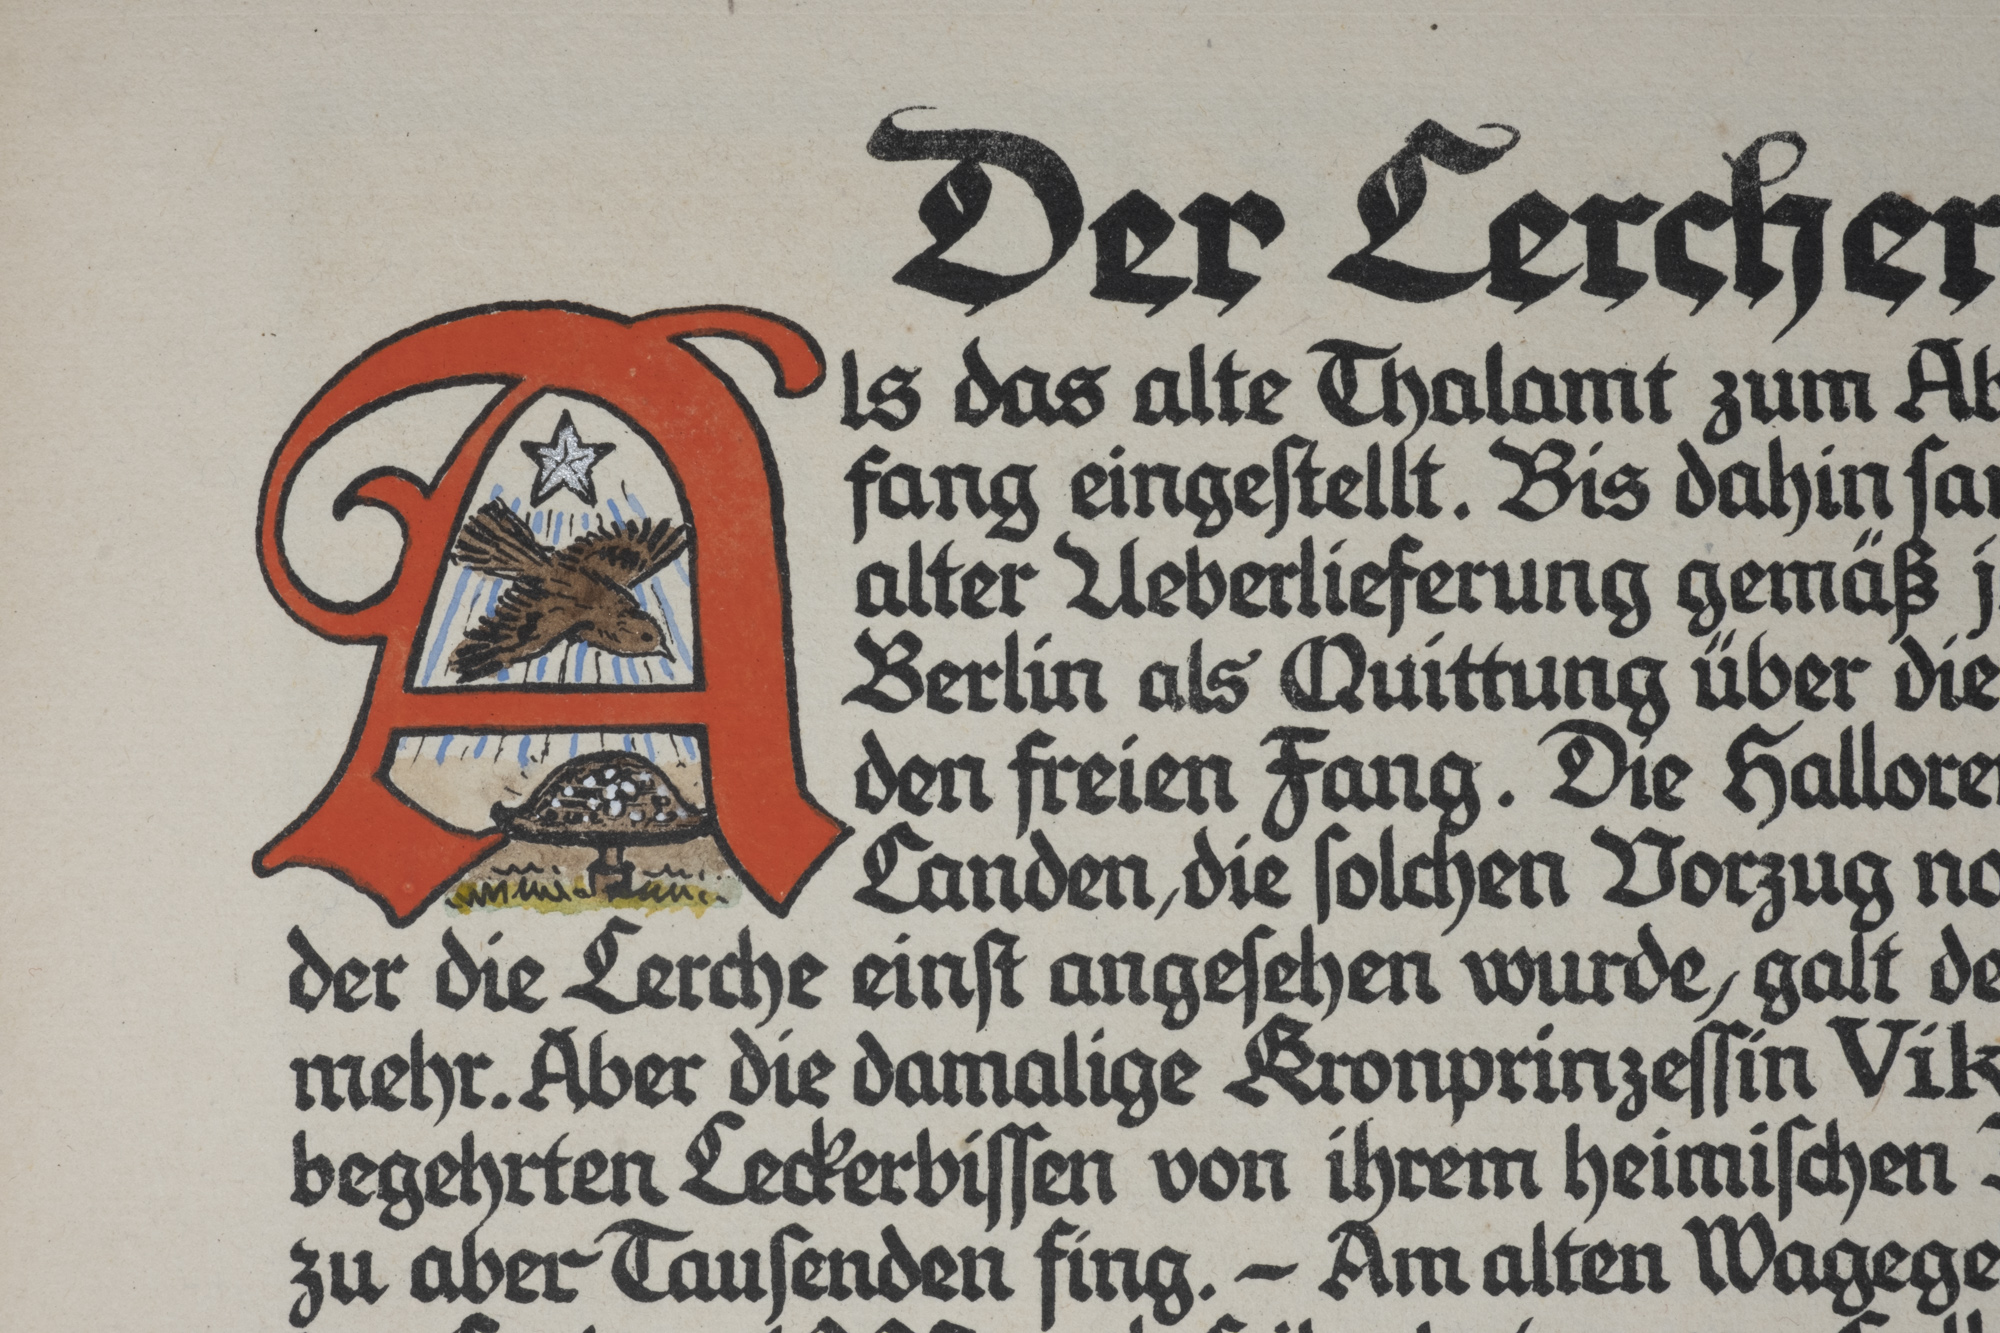 Der Lercher
Als das alte Thalamt zum Ab
fang eingeſtellt. Bis dahin ſan
alter Ueberlieferung gemäß j
Berlin als Quittung über die
den freien Fang. Die Halloren
Landen, die ſolchen Vorzug no
der die Lerche einſt angeſehen wurde, galt de
mehr. Aber die damalige Kronprinzeſſin Vik
begehrten Leckerbiſſen von ihrem heimiſchen
zu aber Tauſenden fing. – Am alten Wagege